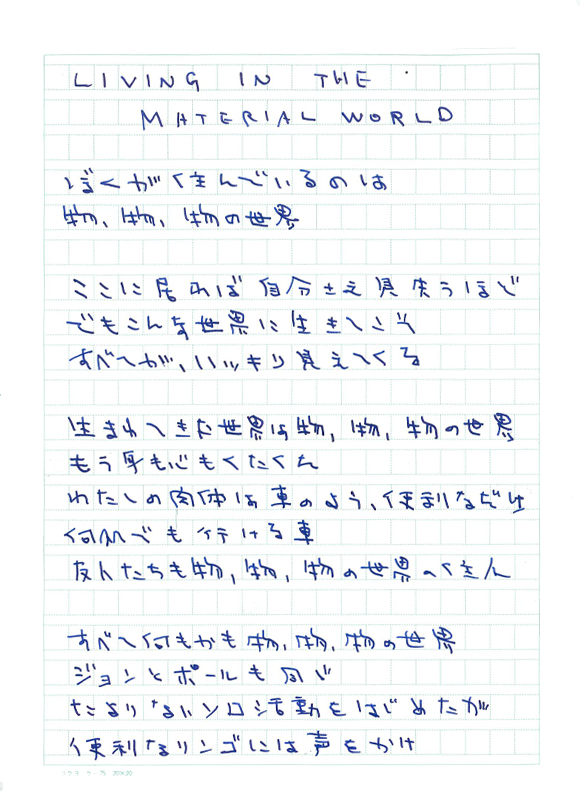 LIVING IN THE
MATERIAL WORLD
ぼくが住んでいるのは
物、物、物の世界
ここに居れば自分さえ見失うほど
でもこんな世界に生きてこそ
すべてが、ハッキリ見えてくる
生まれてきた世界は物、物、物の世界
もう身も心もくたくた
わたしの肉体は車のよう、便利なだけ
何処でも行ける車
友人たちも物、物、物の世界の住人
すべて何もかも物、物、物の世界
ジョンとポールも同じ
たよりないソロ活動をはじめたが
便利なリンゴには声をかけ